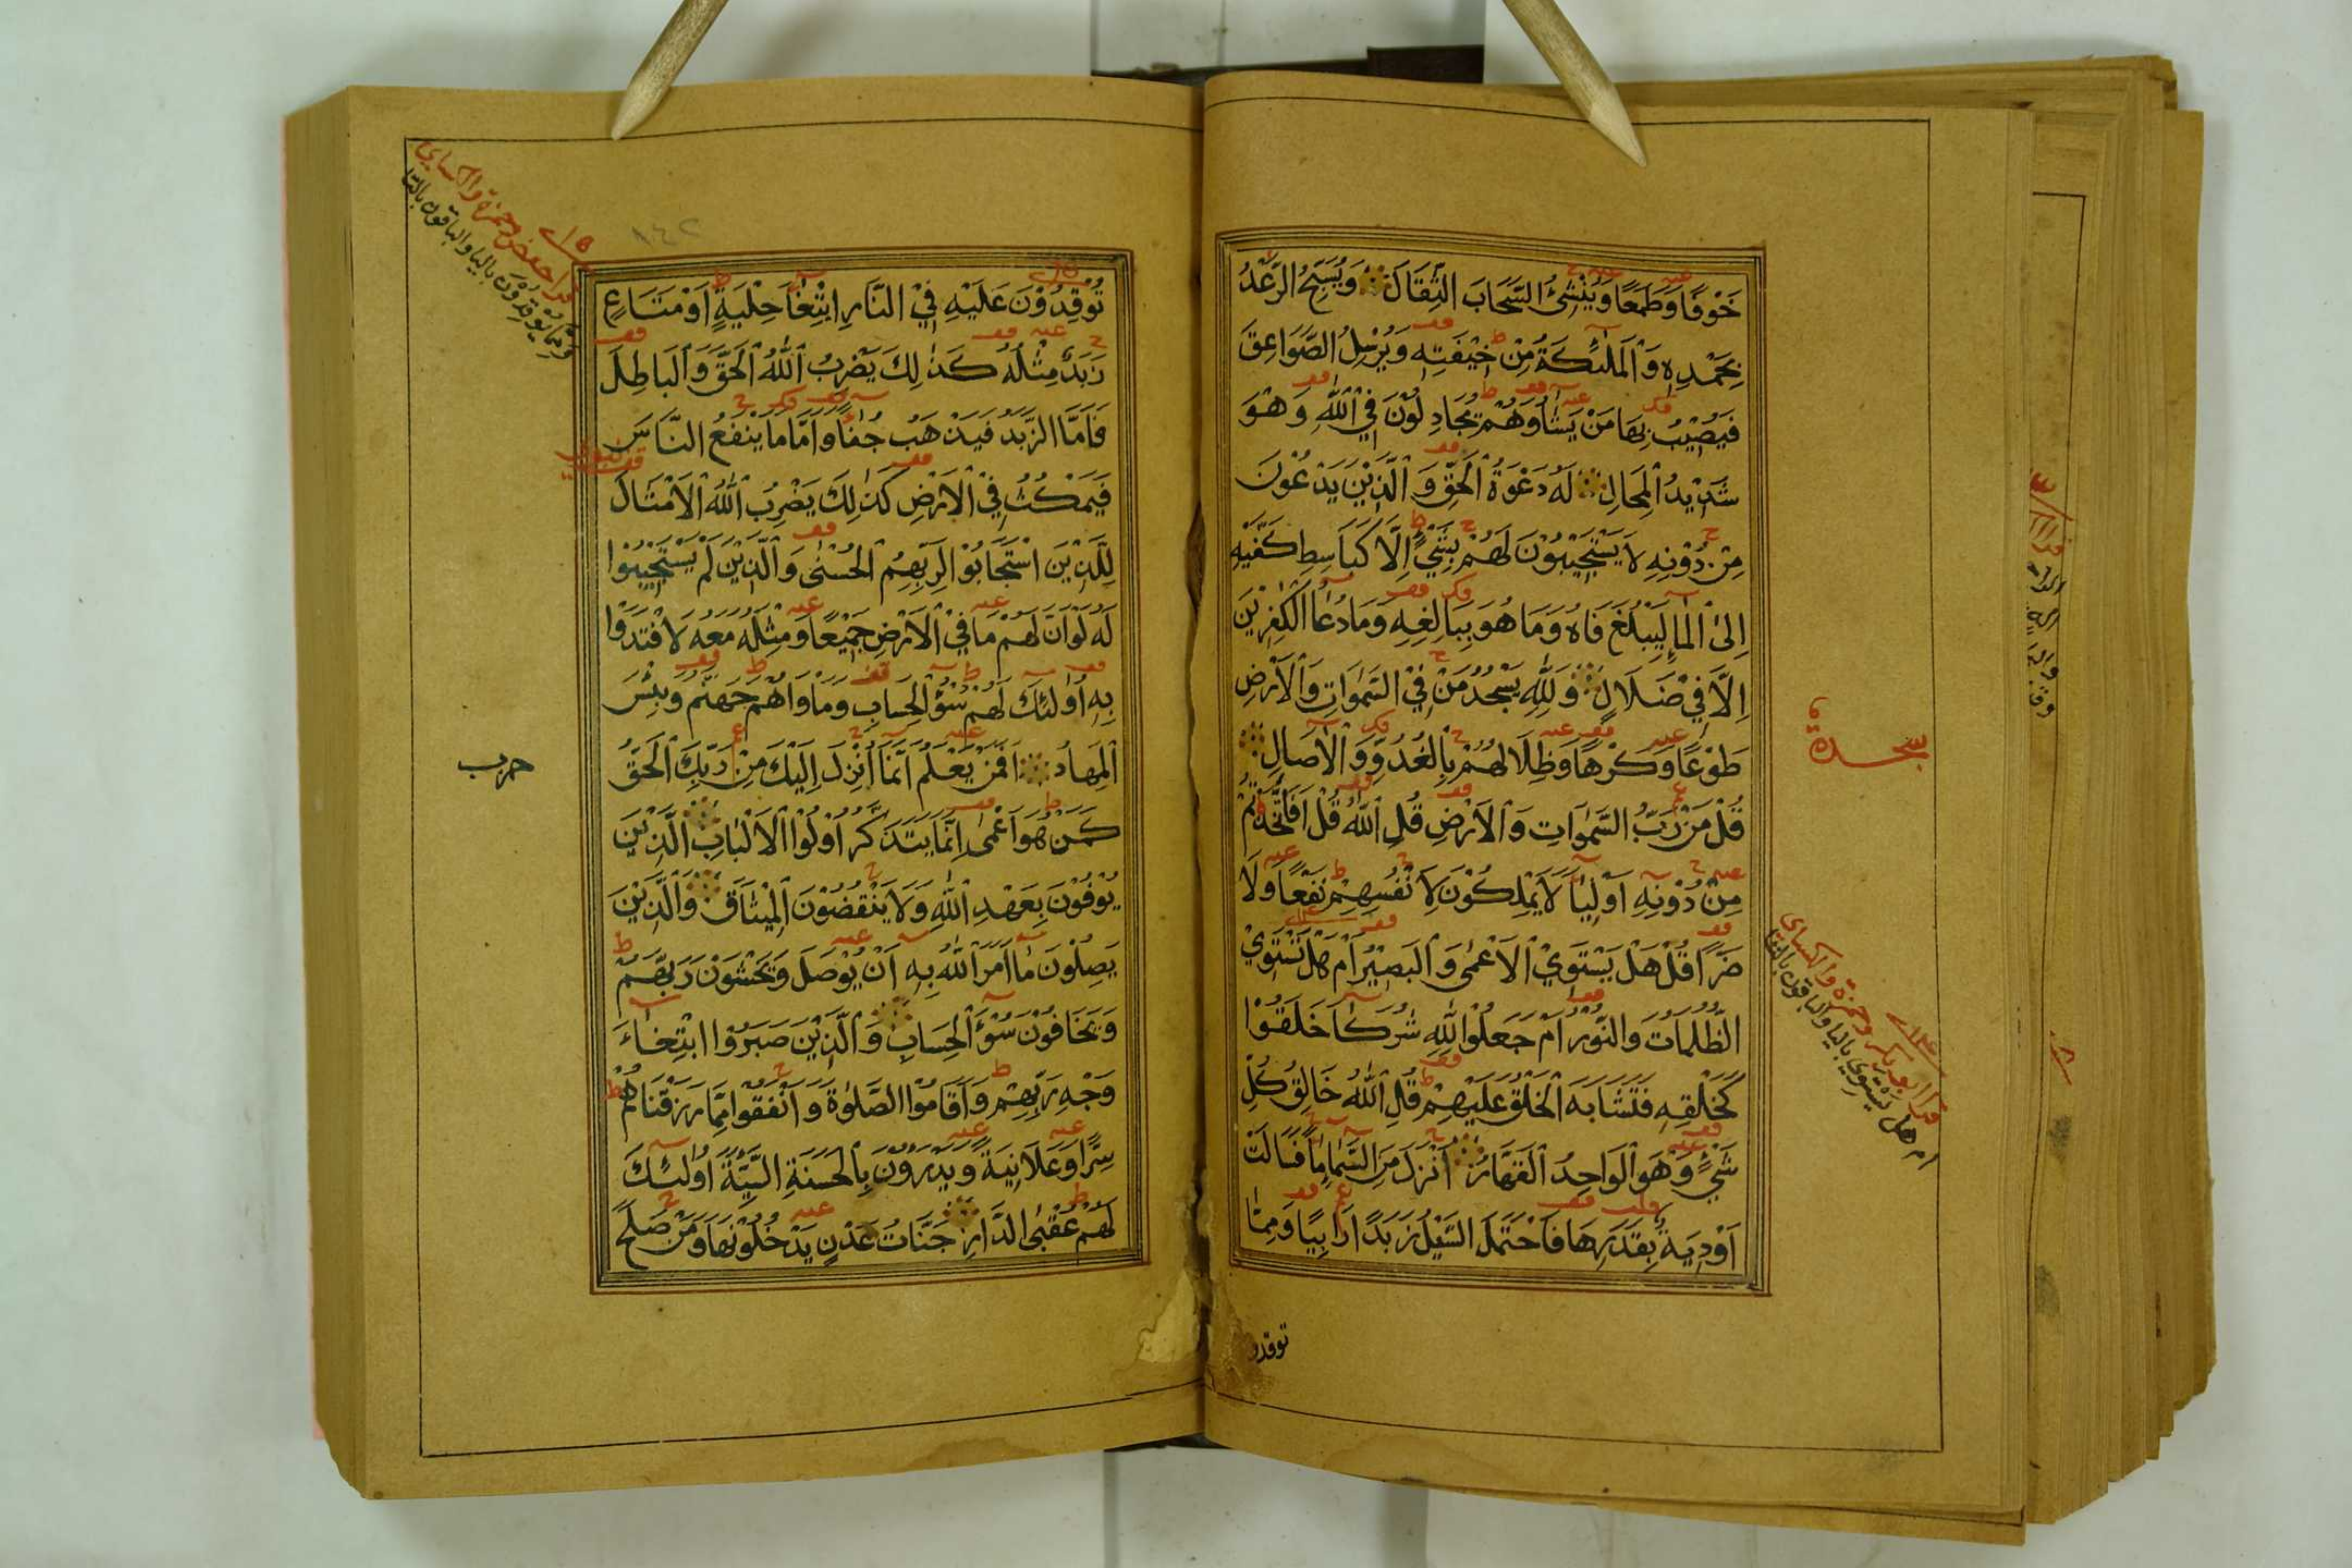 خَوْفًا وَطَمَعًا وَيُنْشِئُ السَّحَابَ الثِّقَالَ وَيُسَبِّحُ الرَّعْدُ
بِحَمْدِهِ وَالْمَلٰئِكَةُ مِنْ خِيْفَتِهِ وَيُرْسِلُ الصَّوَاعِقَ
فَيُصِيْبُ بِهَا مَنْ يَشَاءُ وَهُمْ يُجَادِلُوْنَ فِي اللّٰهِ وَهُوَ
شَدِيْدُ الْمِحَالِ لَهُ دَعْوَةُ الْحَقِّ وَالَّذِيْنَ يَدْعُوْنَ
مِنْ دُوْنِهِ لَا يَسْتَجِيْبُوْنَ لَهُمْ بِشَيْءٍ اِلَّا كَبَاسِطِ كَفَّيْهِ
اِلَى الْمَاءِ لِيَبْلُغَ فَاهُ وَمَا هُوَ بِبَالِغِهِ وَمَا دُعَاءُ الْكٰفِرِيْنَ
اِلَّا فِيْ ضَلَالٍ وَلِلّٰهِ يَسْجُدُ مَنْ فِي السَّمٰوَاتِ وَالْاَرْضِ
طَوْعًا وَكَرْهًا وَظِلَالُهُمْ بِالْغُدُوِّ وَالْاٰصَالِ
سجدة
قُلْ مَنْ رَبُّ السَّمٰوَاتِ وَالْاَرْضِ قُلِ اللّٰهُ قُلْ اَفَاتَّخَذْتُمْ
مِنْ دُوْنِهِ اَوْلِيَاءَ لَا يَمْلِكُوْنَ لِاَنْفُسِهِمْ نَفْعًا وَلَا
ضَرًّا قُلْ هَلْ يَسْتَوِي الْاَعْمٰى وَالْبَصِيْرُ اَمْ هَلْ تَسْتَوِي
الظُّلُمَاتُ وَالنُّوْرُ اَمْ جَعَلُوْا لِلّٰهِ شُرَكَاءَ خَلَقُوْا
كَخَلْقِهِ فَتَشَابَهَ الْخَلْقُ عَلَيْهِمْ قُلِ اللّٰهُ خَالِقُ كُلِّ
شَيْءٍ وَهُوَ الْوَاحِدُ الْقَهَّارُ اَنْزَلَ مِنَ السَّمَاءِ مَاءً فَسَالَتْ
اَوْدِيَةٌ بِقَدَرِهَا فَاحْتَمَلَ السَّيْلُ زَبَدًا رَابِيًا وَمِمَّا
قرأ ابو بكر وحمزة والكسائي
ام هل يستوي بالياء والباقون بالتاء
توقدو
١٤٢
تُوْقِدُوْنَ عَلَيْهِ فِي النَّارِ ابْتِغَاءَ حِلْيَةٍ اَوْ مَتَاعٍ
زَبَدٌ مِثْلُهُ كَذٰلِكَ يَضْرِبُ اللّٰهُ الْحَقَّ وَالْبَاطِلَ
فَاَمَّا الزَّبَدُ فَيَذْهَبُ جُفَاءً وَاَمَّا مَا يَنْفَعُ النَّاسَ
فَيَمْكُثُ فِي الْاَرْضِ كَذٰلِكَ يَضْرِبُ اللّٰهُ الْاَمْثَالَ
لِلَّذِيْنَ اسْتَجَابُوْا لِرَبِّهِمُ الْحُسْنٰى وَالَّذِيْنَ لَمْ يَسْتَجِيْبُوْا
لَهُ لَوْ اَنَّ لَهُمْ مَا فِي الْاَرْضِ جَمِيْعًا وَمِثْلَهُ مَعَهُ لَافْتَدَوْا
بِهِ اُولٰئِكَ لَهُمْ سُوْءُ الْحِسَابِ وَمَأْوَاهُمْ جَهَنَّمُ وَبِئْسَ
الْمِهَادُ اَفَمَنْ يَعْلَمُ اَنَّمَا اُنْزِلَ اِلَيْكَ مِنْ رَبِّكَ الْحَقُّ
حزب
كَمَنْ هُوَ اَعْمٰى اِنَّمَا يَتَذَكَّرُ اُولُوا الْاَلْبَابِ الَّذِيْنَ
يُوْفُوْنَ بِعَهْدِ اللّٰهِ وَلَا يَنْقُضُوْنَ الْمِيْثَاقَ وَالَّذِيْنَ
يَصِلُوْنَ مَا اَمَرَ اللّٰهُ بِهِ اَنْ يُوْصَلَ وَيَخْشَوْنَ رَبَّهُمْ
وَيَخَافُوْنَ سُوْءَ الْحِسَابِ وَالَّذِيْنَ صَبَرُوا ابْتِغَاءَ
وَجْهِ رَبِّهِمْ وَاَقَامُوا الصَّلٰوةَ وَاَنْفَقُوْا مِمَّا رَزَقْنَاهُمْ
سِرًّا وَعَلَانِيَةً وَيَدْرَءُوْنَ بِالْحَسَنَةِ السَّيِّئَةَ اُولٰئِكَ
لَهُمْ عُقْبَى الدَّارِ جَنَّاتُ عَدْنٍ يَدْخُلُوْنَهَا وَمَنْ صَلَحَ
قرأ حفص وحمزة والكسائي
ومما يوقدون بالياء والباقون بالتاء